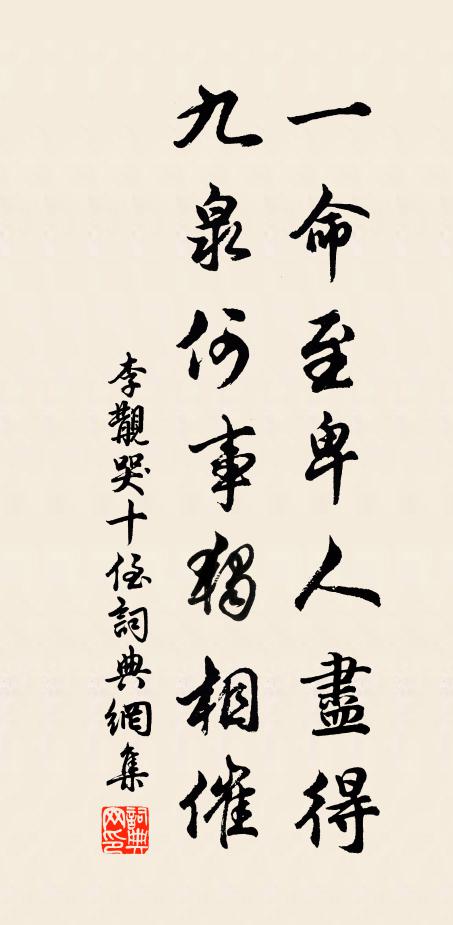 一命至卑人盡得
九泉何事獨相催
李覯哭十侄詞典網集
詞典
网印